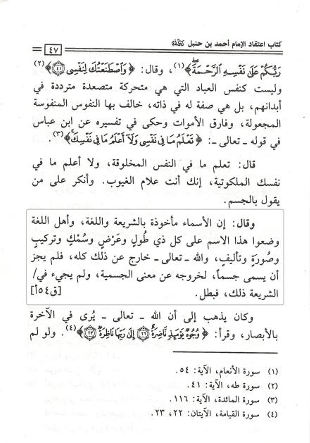 كتاب اعتقاد الإمام أحمد بن حنبل رَحِمَهُ اللهُ
٤٧
رَبُّكُمْ عَلَىٰ نَفْسِهِ الرَّحْمَةَ﴾(١)، وقال: ﴿وَاصْطَنَعْتُكَ لِنَفْسِي ۝٤١﴾(٢)
وليست كنفس العباد التي هي متحركة متصعدة مترددة في
أبدانهم، بل هي صفة له في ذاته، خالف بها النفوس المنفوسة
المجعولة، وفارق الأموات وحكى في تفسيره عن ابن عباس
في قوله ـ تعالى ـ: ﴿تَعْلَمُ مَا فِي نَفْسِي وَلَا أَعْلَمُ مَا فِي نَفْسِكَ﴾(٣).
قال: تعلم ما في النفس المخلوقة، ولا أعلم ما في
نفسك الملكوتية، إنك أنت علام الغيوب. وأنكر على من
يقول بالجسم.
وقال: إن الأسماء مأخوذة بالشريعة واللغة، وأهل اللغة
وضعوا هذا الاسم على كل ذي طُولٍ وعَرْضٍ وسُمْكٍ وتركيبٍ
وصُورَةٍ وتأليفٍ، والله ـ تعالى ـ خارج عن ذلك كله، فلم يجز
أن يسمى جسماً، لخروجه عن معنى الجسمية، ولم يجيء في/
الشريعة ذلك، فبطل. [ق٥٤أ]
وكان يذهب إلى أن الله ـ تعالى ـ يُرى في الآخرة
بالأبصار، وقرأ: ﴿وُجُوهٌ يَوْمَئِذٍ نَاضِرَةٌ ۝٢٢ إِلَىٰ رَبِّهَا نَاظِرَةٌ ۝٢٣﴾(٤). ولو لم
(١) سورة الأنعام، الآية: ٥٤.
(٢) سورة طه، الآية: ٤١.
(٣) سورة المائدة، الآية: ١١٦.
(٤) سورة القيامة، الآيتان: ٢٢، ٢٣.